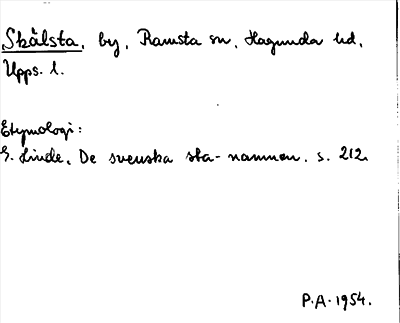 Skälsta, by, Ramsta sn, Hagunda hd,
Upps. l.
Etymologi:
G. Linde, De svenska sta-namnen. s. 212.
P.A. 1954.